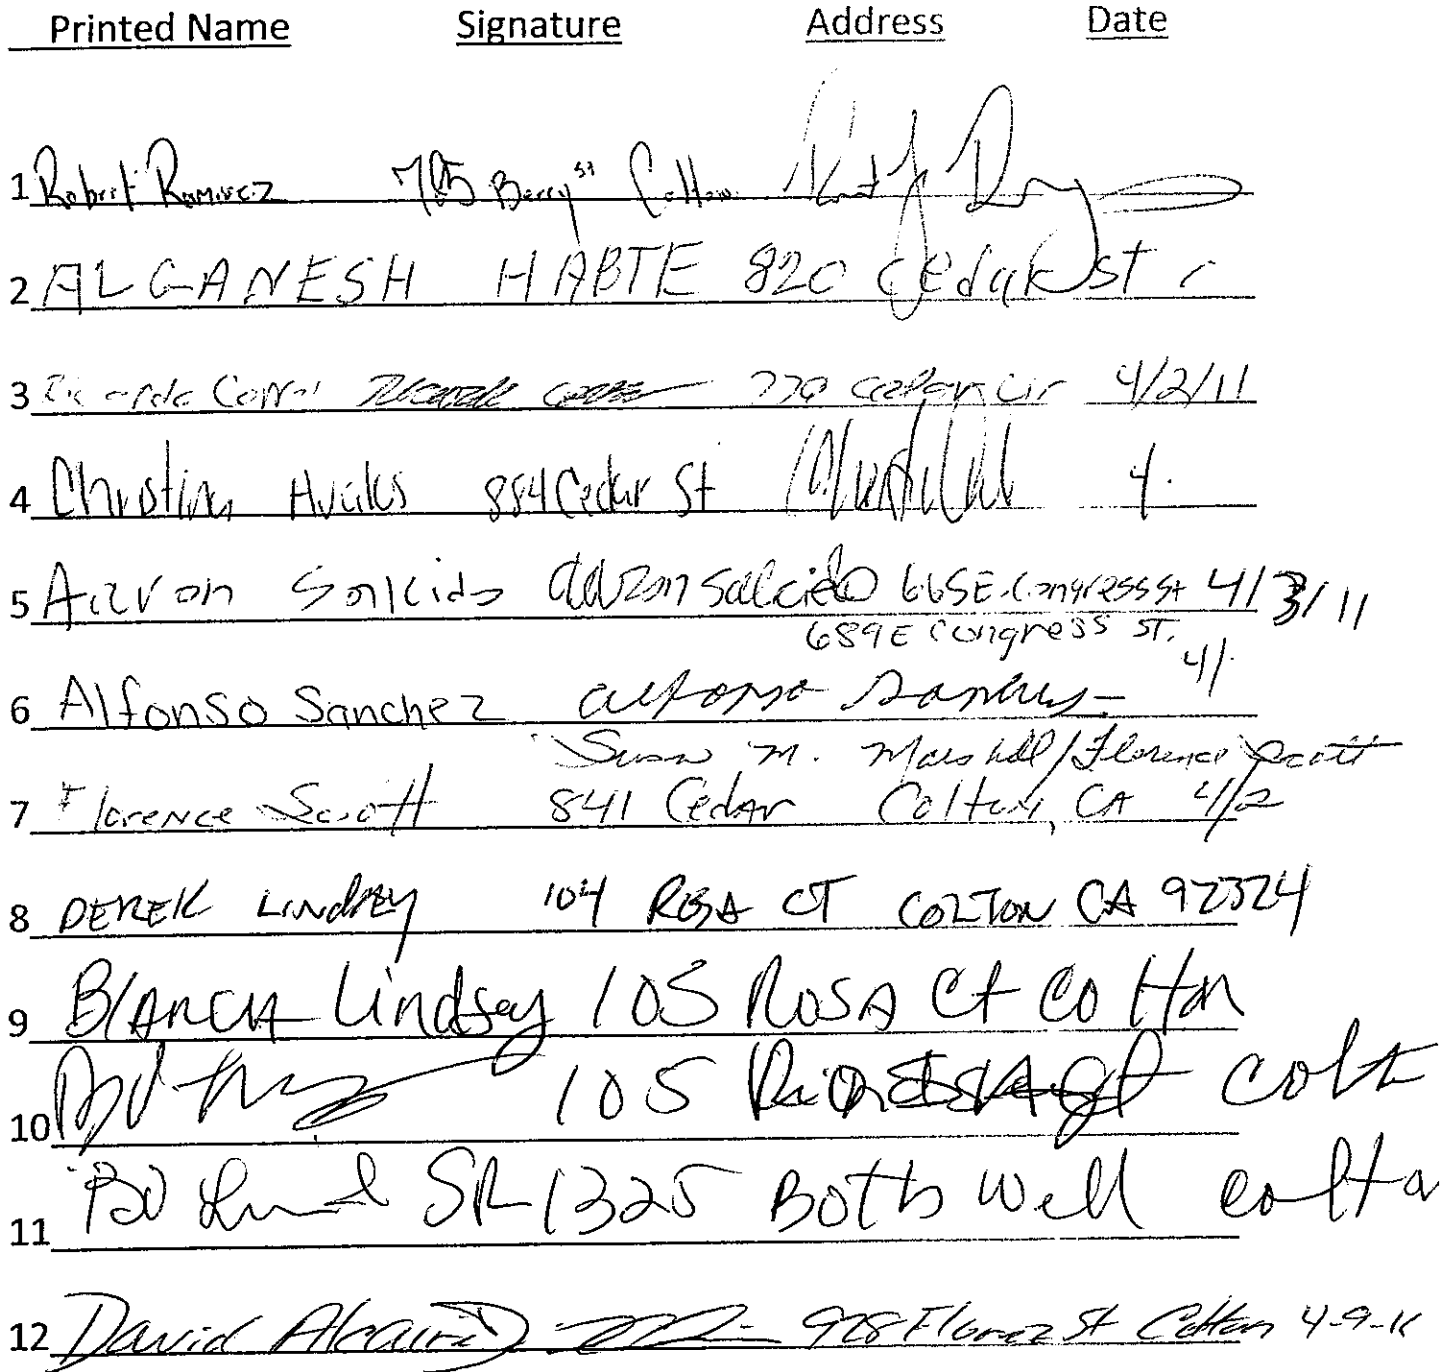 Printed Name Signature Address Date
1 Robert Ramirez 785 Berry st Colton
2 ALGANESH HABTE 820 Cedar st
3 Ricardo Corral 770 cedar cir 4/2/11
4 Christina Aviles 884 Cedar St 4.
5 Aaron Salcido Aaron Salcido 665 E. Congress St 4/3/11
689 E Congress ST.
4/
6 Alfonso Sanchez Alfonso Sanchez
Susan M. Marshall / Florence Scott
7 Florence Scott 841 Cedar Colton, CA 4/2
8 DEREK LINDSEY 104 ROSA CT COLTON CA 92324
9 Blanca Lindsey 105 Rosa Ct Colton
10 105 Colt
11 SR 1325 Bothwell Colto
12 David 928 St Colton 4-9-11